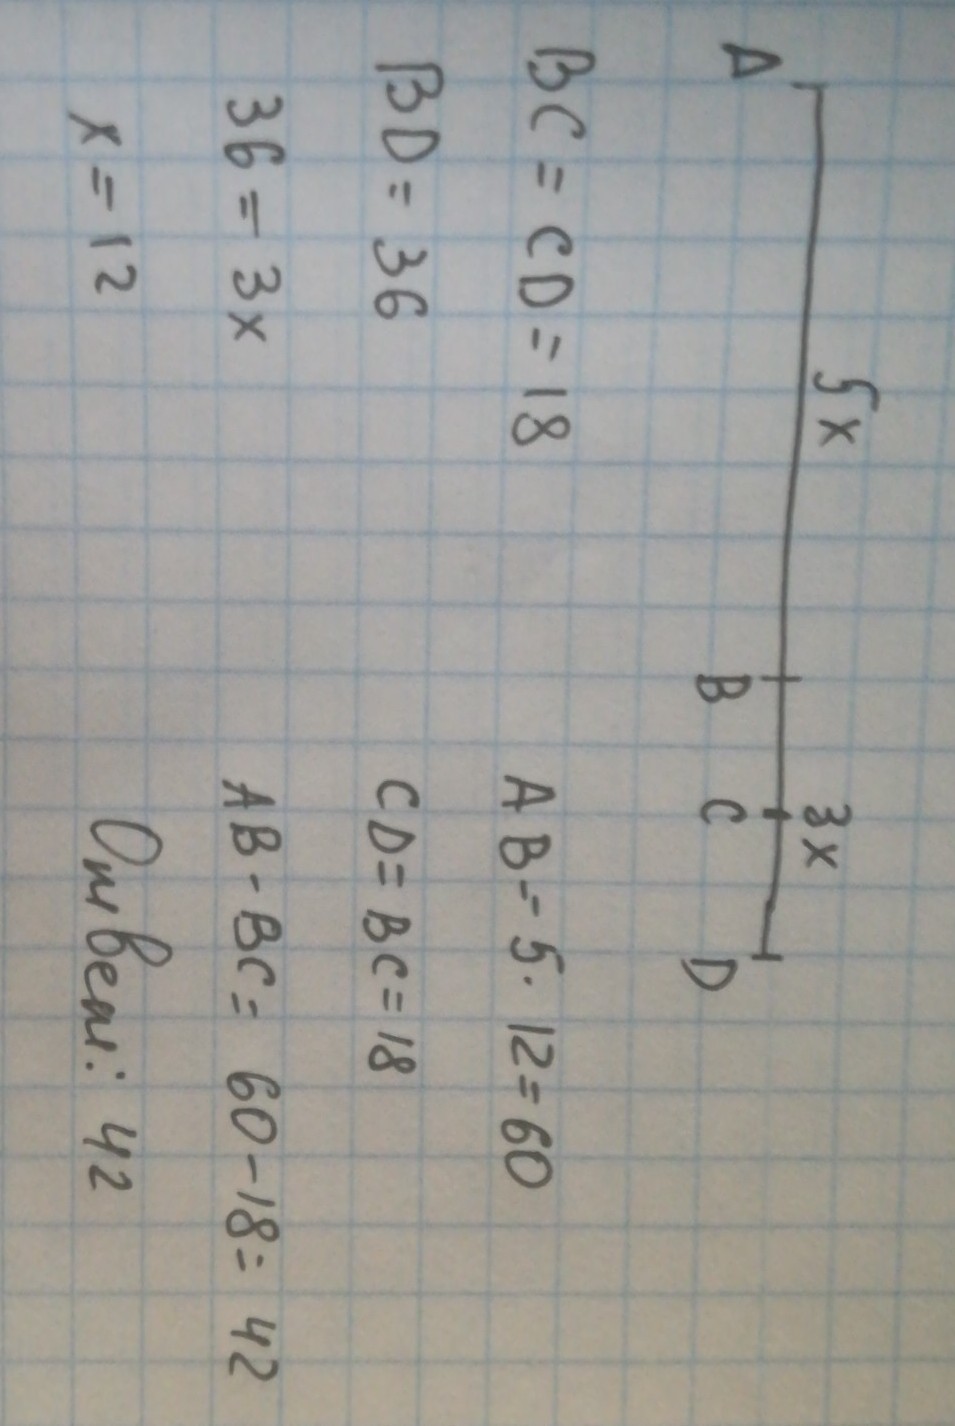 5x 3x
A B C D
BC = CD = 18
BD = 36
36 = 3x
x = 12
AB = 5 · 12 = 60
CD = BC = 18
AB - BC = 60 - 18 = 42
Ответ: 42